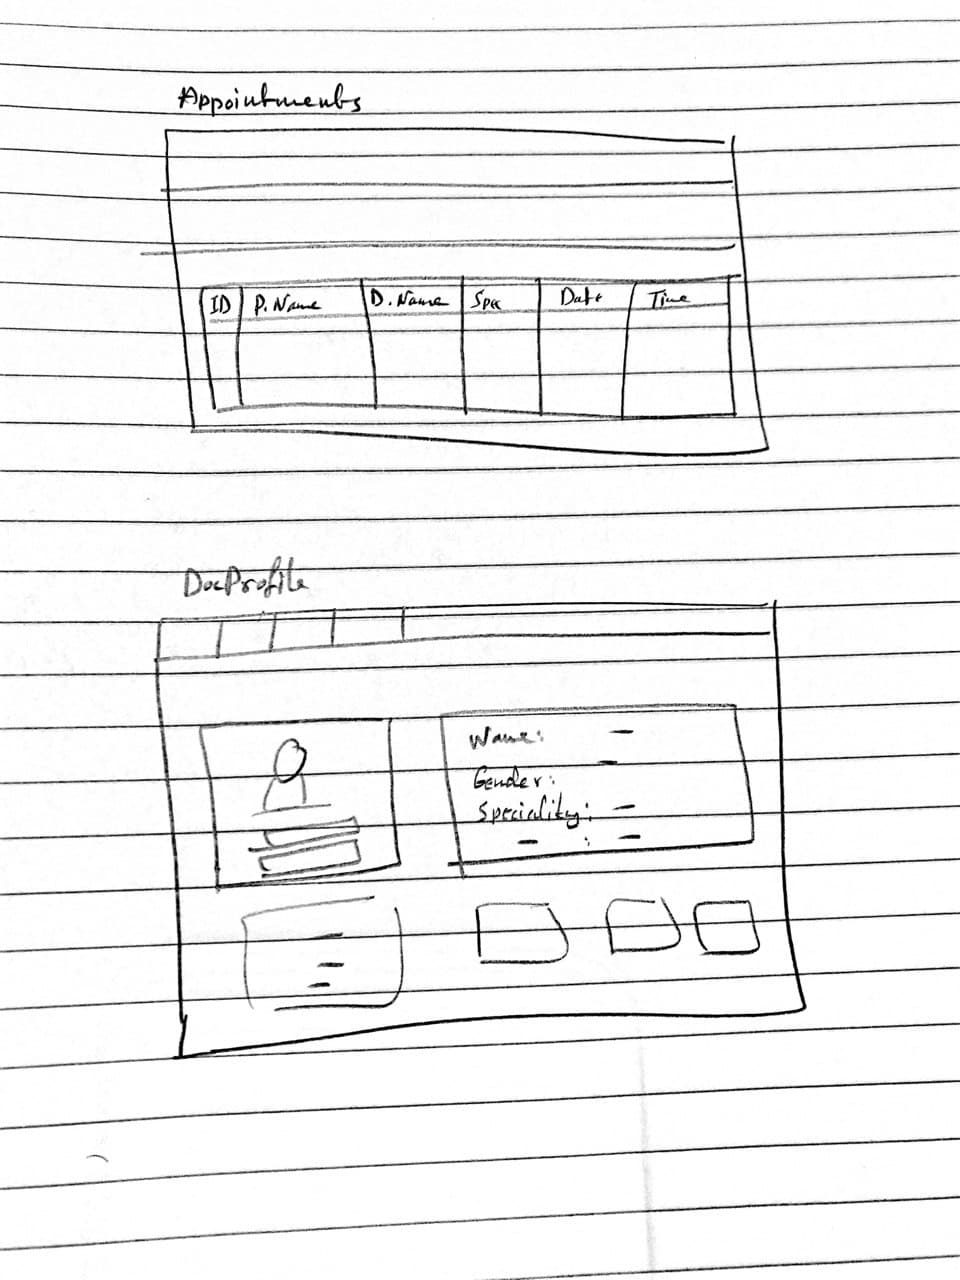 Appointments
ID P. Name D. Name Spec Date Time
DocProfile
Name: —
Gender: —
Speciality: —
— : —